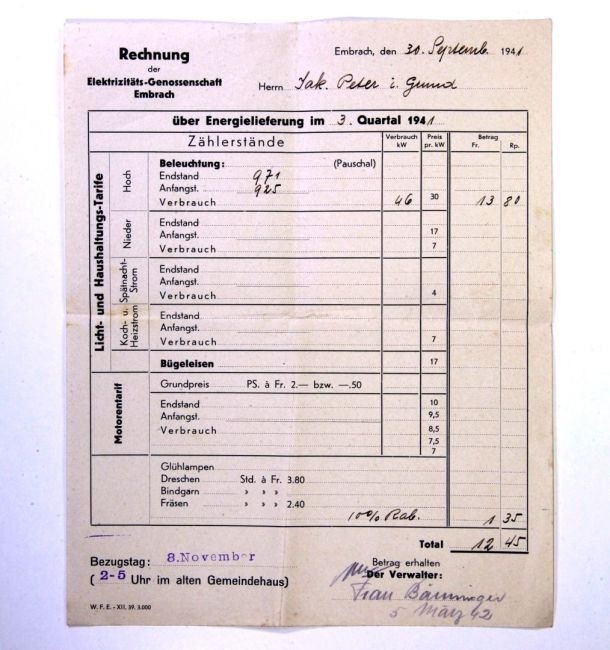 Rechnung
der
Elektrizitäts-Genossenschaft
Embrach
Embrach, den 30. Septemb. 1941
Herrn Jak. Peter i. Grund
über Energielieferung im 3. Quartal 1941
Zählerstände
Verbrauch kW
Preis pr. kW
Betrag
Fr. Rp.
Licht- und Haushaltungs-Tarife
Hoch
Beleuchtung: (Pauschal)
Endstand 971
Anfangst. 925
Verbrauch 46 30 13 80
Nieder
Endstand
Anfangst. 17
Verbrauch 7
Spätnacht-Strom
Endstand
Anfangst.
Verbrauch 4
Koch- u. Heizstrom
Endstand
Anfangst.
Verbrauch 7
Bügeleisen 17
Motorentarif
Grundpreis PS. à Fr. 2.— bzw. —.50
Endstand 10
Anfangst. 9,5
Verbrauch 8,5
7,5
7
Glühlampen
Dreschen Std. à Fr. 3.80
Bindgarn » » »
Fräsen » » » 2.40
10% Rab. 1 35
Total 12 45
Bezugstag: 8. November
( 2-5 Uhr im alten Gemeindehaus)
Betrag erhalten
Der Verwalter:
Frau Bänninger
5 März 42
W. F. E. - XII. 39. 3.000